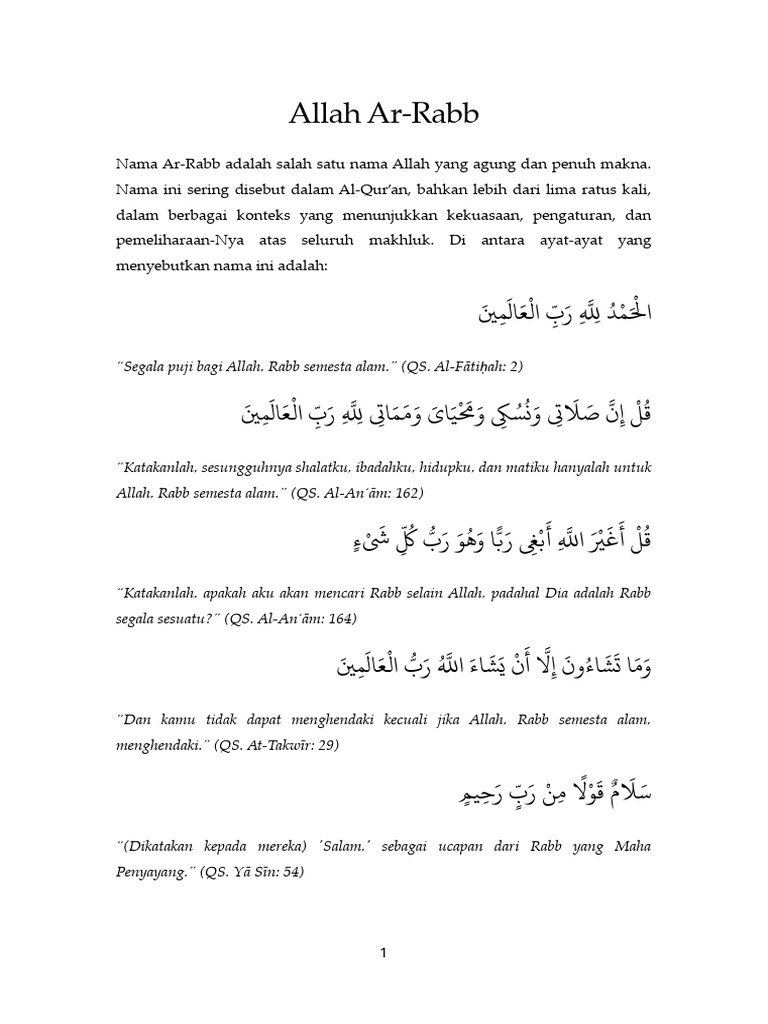 Allah Ar-Rabb
Nama Ar-Rabb adalah salah satu nama Allah yang agung dan penuh makna.
Nama ini sering disebut dalam Al-Qur’an, bahkan lebih dari lima ratus kali,
dalam berbagai konteks yang menunjukkan kekuasaan, pengaturan, dan
pemeliharaan-Nya atas seluruh makhluk. Di antara ayat-ayat yang
menyebutkan nama ini adalah:
الْحَمْدُ لِلَّهِ رَبِّ الْعَالَمِينَ
¨Segala puji bagi Allah, Rabb semesta alam.¨ (QS. Al-Fātiḥah: 2)
قُلْ إِنَّ صَلَاتِي وَنُسُكِي وَمَحْيَايَ وَمَمَاتِي لِلَّهِ رَبِّ الْعَالَمِينَ
¨Katakanlah, sesungguhnya shalatku, ibadahku, hidupku, dan matiku hanyalah untuk
Allah, Rabb semesta alam.¨ (QS. Al-An´ām: 162)
قُلْ أَغَيْرَ اللَّهِ أَبْغِي رَبًّا وَهُوَ رَبُّ كُلِّ شَيْءٍ
¨Katakanlah, apakah aku akan mencari Rabb selain Allah, padahal Dia adalah Rabb
segala sesuatu?¨ (QS. Al-An´ām: 164)
وَمَا تَشَاءُونَ إِلَّا أَنْ يَشَاءَ اللَّهُ رَبُّ الْعَالَمِينَ
¨Dan kamu tidak dapat menghendaki kecuali jika Allah, Rabb semesta alam,
menghendaki.¨ (QS. At-Takwīr: 29)
سَلَامٌ قَوْلًا مِنْ رَبٍّ رَحِيمٍ
¨(Dikatakan kepada mereka) 'Salam,' sebagai ucapan dari Rabb yang Maha
Penyayang.¨ (QS. Yā Sīn: 54)
1